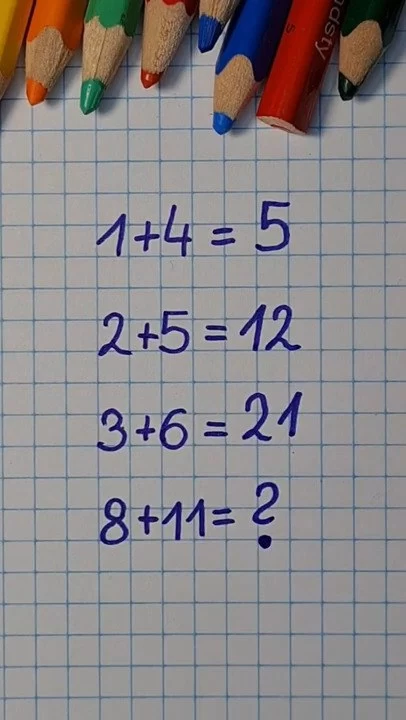 1+4=5
2+5=12
3+6=21
8+11=?